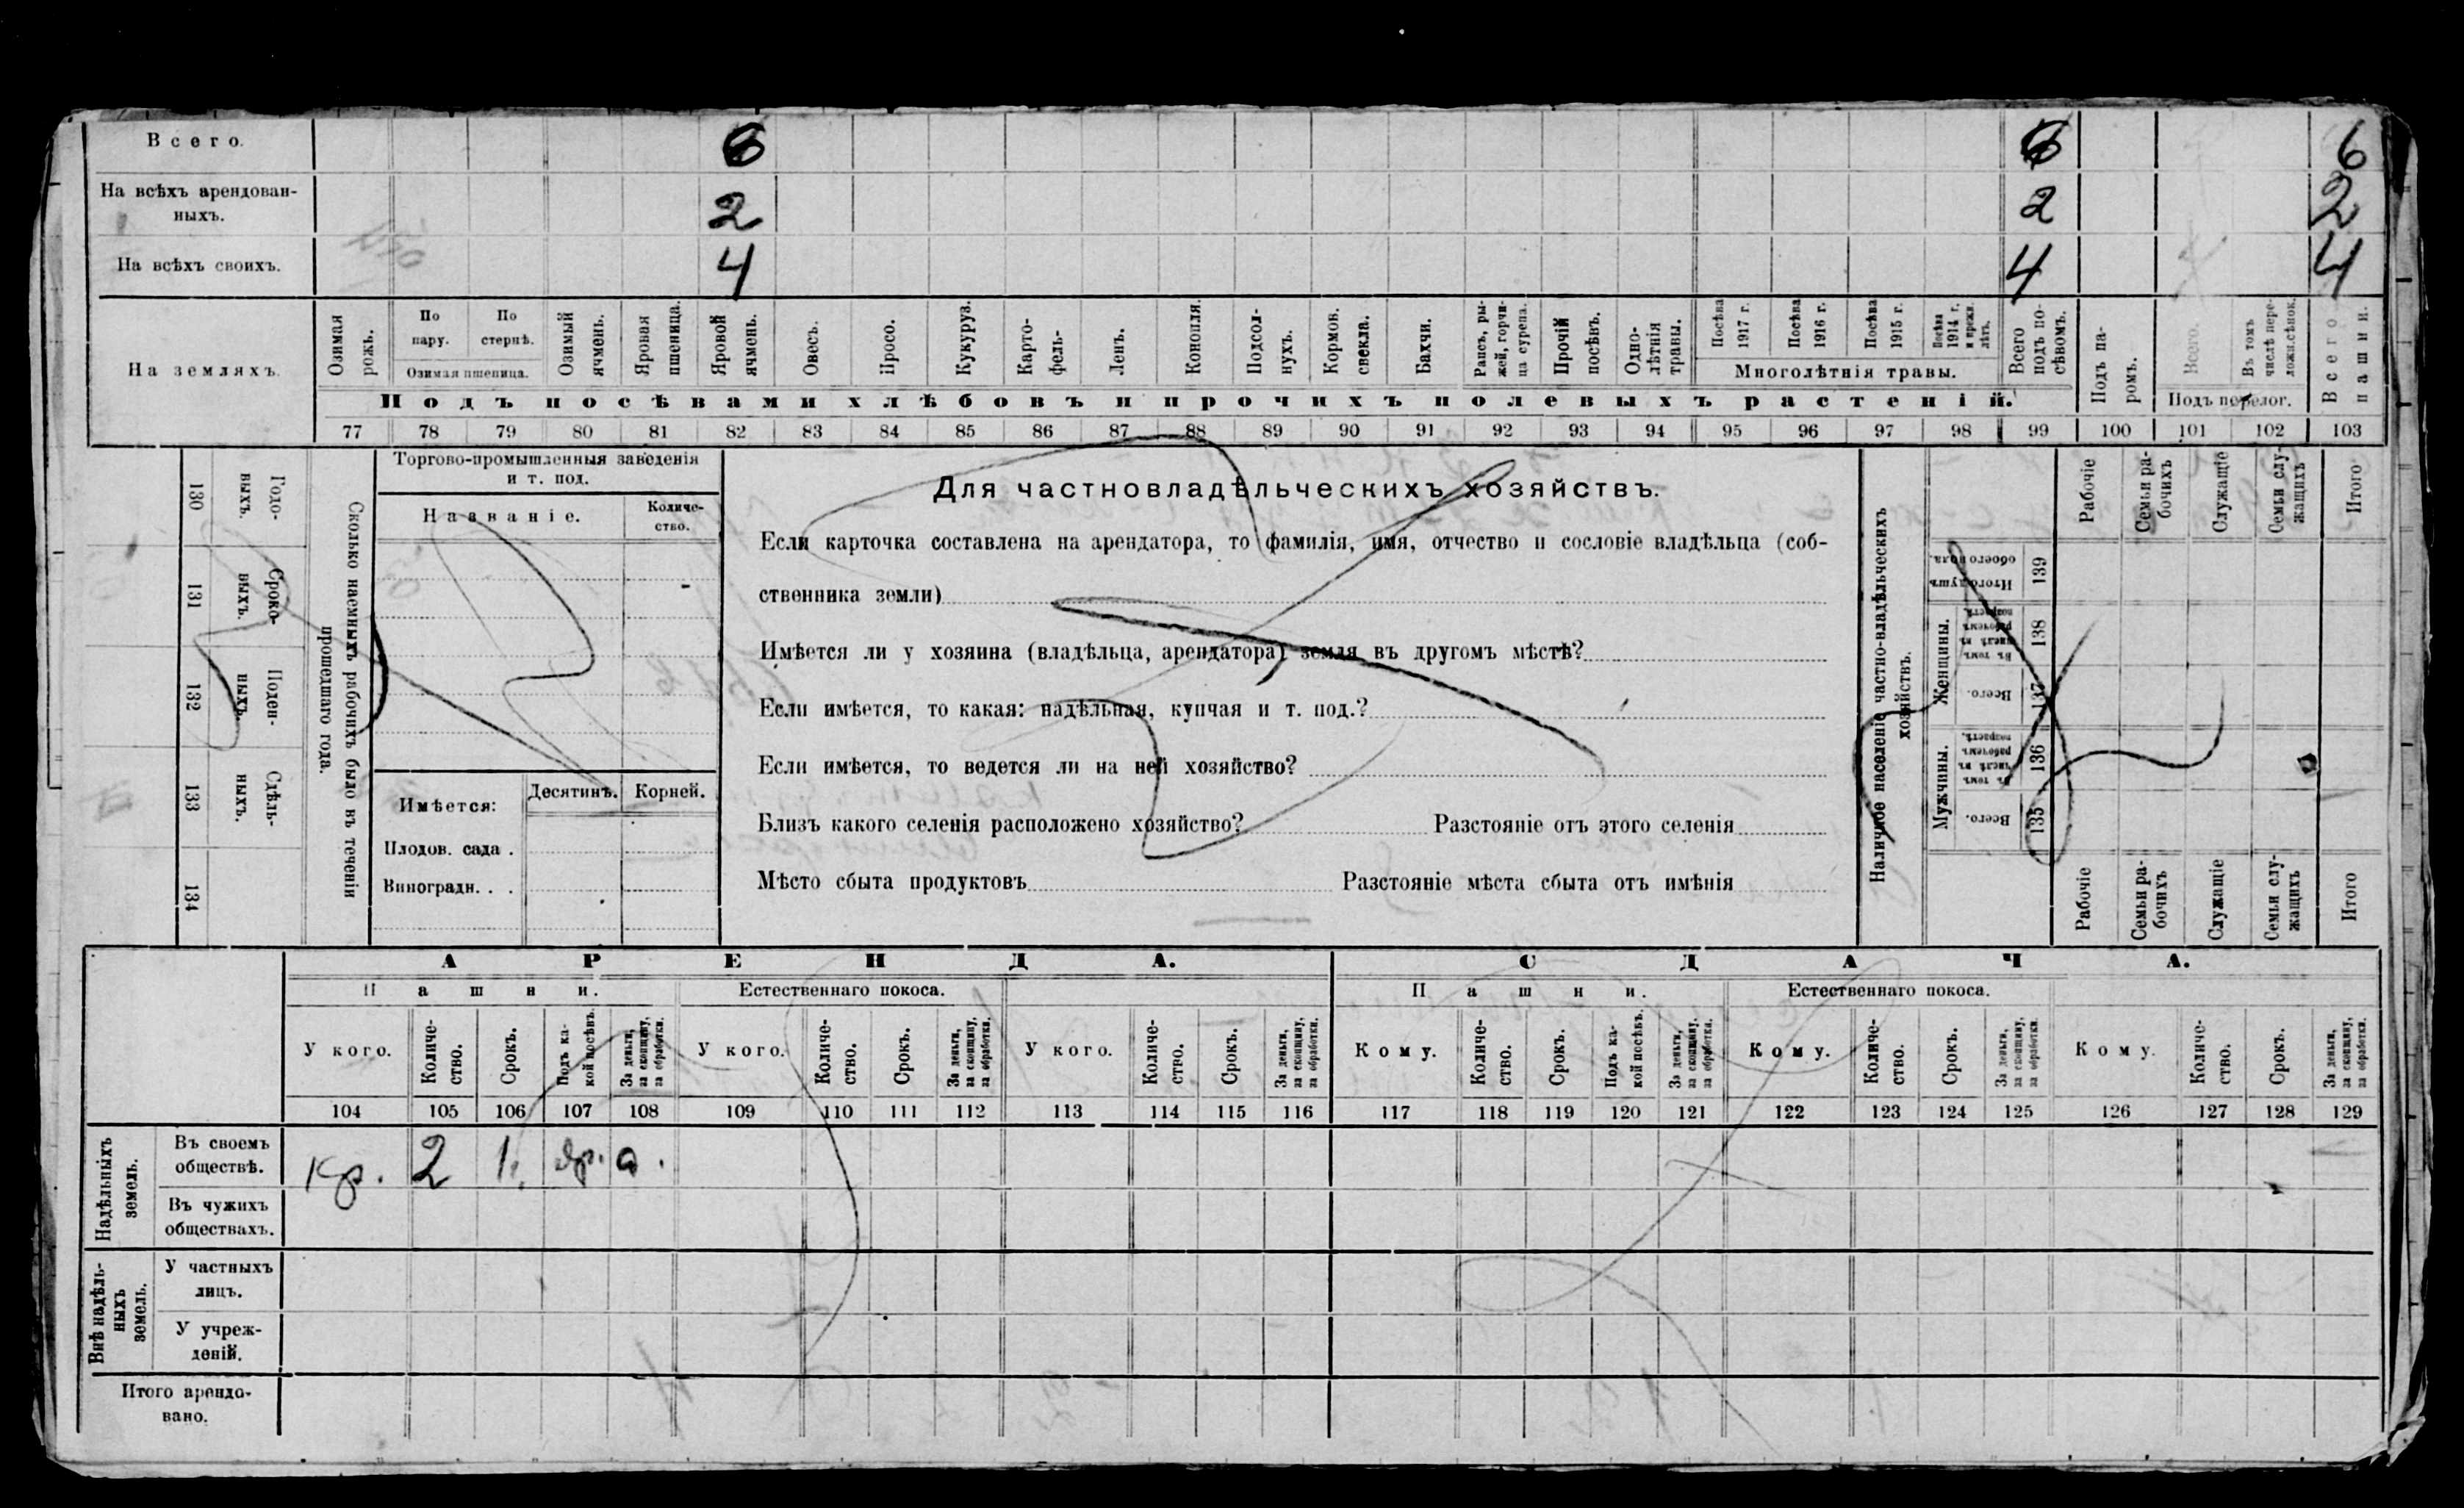 Всего. 6 6 6
На всѣхъ арендован-
ныхъ. 2 2 2
На всѣхъ своихъ. 4 4 4
На земляхъ.
Озимая рожь.
По пару.
По стернѣ.
Озимая пшеница.
Озимый ячмень.
Яровая пшеница.
Яровой ячмень.
Овесъ.
Просо.
Кукуруз.
Карто-фель.
Ленъ.
Конопля.
Подсол-нухъ.
Кормов. свекла.
Бахчи.
Рапсъ, ры-жей, горчи-ца сурепа.
Прочій посѣвъ.
Одно-лѣтнія травы.
Посѣва 1917 г.
Посѣва 1916 г.
Посѣва 1915 г.
Посѣва 1914 г. и прежн. лѣтъ.
Многолѣтнія травы.
Всего подъ по-сѣвомъ.
Подъ па-ромъ.
Всего.
Въ томъ числѣ пере-ложн.сѣнок.
Подъ перелог.
Всего пашни.
Подъ посѣвами хлѣбовъ и прочихъ полевыхъ растеній.
77 78 79 80 81 82 83 84 85 86 87 88 89 90 91 92 93 94 95 96 97 98 99 100 101 102 103
130 Годо-выхъ.
131 Сроко-выхъ.
132 Поден-ныхъ.
133 Сдѣль-ныхъ.
134
Сколько наемныхъ рабочихъ было въ теченіи
прошедшаго года.
Торгово-промышленныя заведенія
и т. под.
Названіе. Количе-ство.
Имѣется: Десятинъ. Корней.
Плодов. сада .
Виноградн. . .
Для частновладѣльческихъ хозяйствъ.
Если карточка составлена на арендатора, то фамилія, имя, отчество и сословіе владѣльца (соб-
ственника земли)
Имѣется ли у хозяина (владѣльца, арендатора) земля въ другомъ мѣстѣ?
Если имѣется, то какая: надѣльная, купчая и т. под.?
Если имѣется, то ведется ли на ней хозяйство?
Близъ какого селенія расположено хозяйство? Разстояніе отъ этого селенія
Мѣсто сбыта продуктовъ Разстояніе мѣста сбыта отъ имѣнія
Наличное населеніе частно-владѣльческихъ
хозяйствъ.
Рабочіе
Семьи ра-бочихъ
Служащіе
Семьи слу-жащихъ
Итого
Итого душъ обоего пола. 139
Женщины.
Въ томъ числѣ въ рабочемъ возрастѣ. 138
Всего. 137
Мужчины.
Въ томъ числѣ въ рабочемъ возрастѣ. 136
Всего. 135
Рабочіе
Семьи ра-бочихъ
Служащіе
Семьи слу-жащихъ
Итого
АРЕНДА. СДАЧА.
Пашни. Естественнаго покоса. Пашни. Естественнаго покоса.
У кого.
Количе-ство.
Срокъ.
Подъ ка-кой посѣвъ.
За деньги, за скопщину, за обработки.
У кого.
Количе-ство.
Срокъ.
За деньги, за скопщину, за обработки.
У кого.
Количе-ство.
Срокъ.
За деньги, за скопщину, за обработки.
Кому.
Количе-ство.
Срокъ.
Подъ ка-кой посѣвъ.
За деньги, за скопщину, за обработки.
Кому.
Количе-ство.
Срокъ.
За деньги, за скопщину, за обработки.
Кому.
Количе-ство.
Срокъ.
За деньги, за скопщину, за обработки.
104 105 106 107 108 109 110 111 112 113 114 115 116 117 118 119 120 121 122 123 124 125 126 127 128 129
Надѣльныхъ земель.
Въ своемъ
обществѣ. Кр. 2 1.
Въ чужихъ
обществахъ.
Внѣ надѣль-ныхъ земель.
У частныхъ
лицъ.
У учреж-
деній.
Итого арендо-
вано.